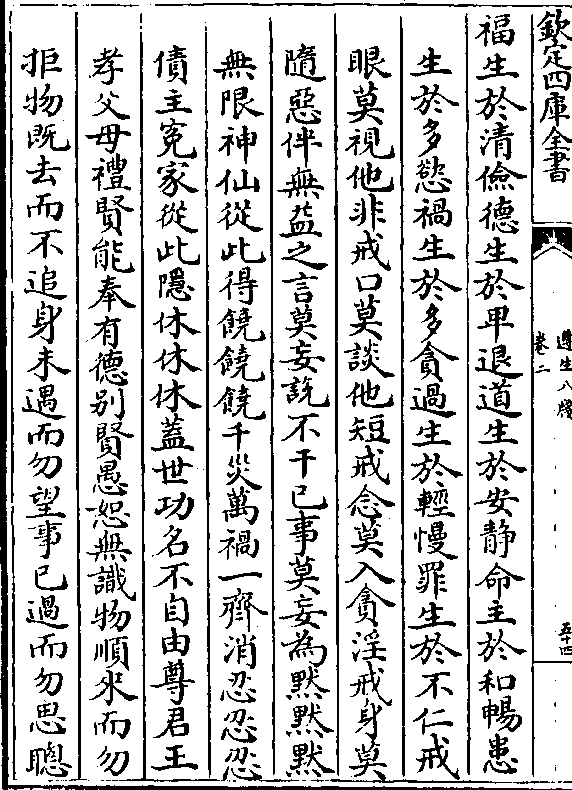 欽定四庫全書
遵生八牋
卷二
五十四
福生於清儉德生於卑退道生於安静命主於和暢患
生於多慾禍生於多貪過生於輕慢罪生於不仁戒
眼莫視他非戒口莫談他短戒念莫入貪淫戒身莫
隨惡伴無益之言莫妄說不干已事莫妄為默默默
無限神仙從此得饒饒饒千災萬禍一齊消忍忍忍
債主寃家從此隱休休休蓋世功名不自由尊君王
孝父母禮賢能奉有德别賢愚恕無識物順來而勿
拒物既去而不追身未遇而勿望事已過而勿思聰